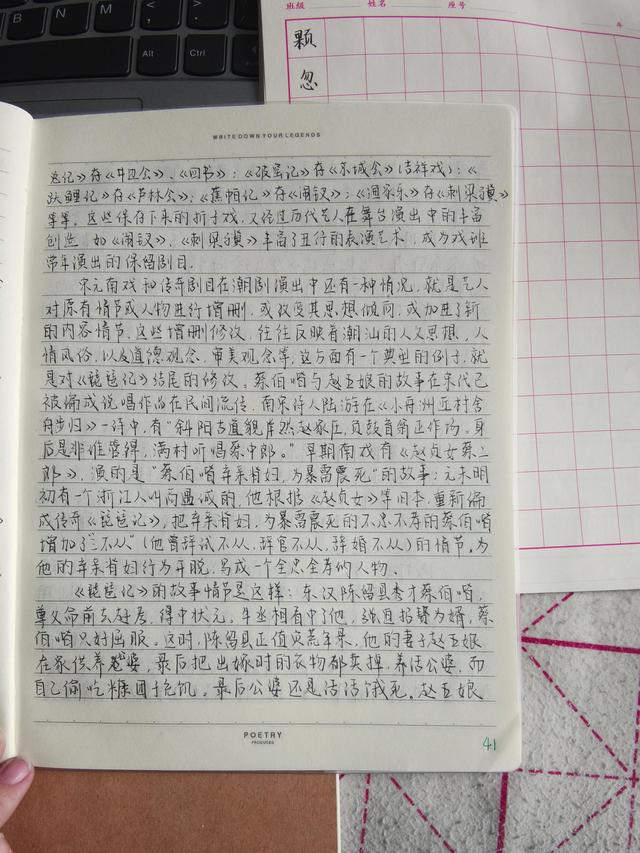 End
Alt
Ctrl
班级 姓名 座号
年
颗
忽
WRITE DOWN YOUR LEGENDS
忘记》存《井边会》、《回书》;《 窑记》存《 城会》(吉祥戏);《
跃鲤记》存《芦林会》;《蕉帕记》存《闹钗》;《渔家乐》存《刺梁冀》
等等。这些保存下来的折子戏,又经过历代艺人在舞台演出中的丰富
创造,如《闹钗》、《刺梁冀》丰富了丑行的表演艺术,成为戏班
常年演出的保留剧目。
宋元南戏和传奇剧目在潮剧演出中还有一种情况,就是艺人
对原有情节或人物进行增删,或改变其思想倾向,或加进了新
的内容情节,这些增删修改,往往反映着潮汕的人文思想,人
情风俗,以及道德观念,审美观念等,这方面有一个典型的例子,就
是对《琵琶记》结尾的修改。蔡伯喈与赵五娘的故事在宋代已
被编成说唱作品在民间流传,南宋诗人陆游在《小舟游近村舍
舟步归》一诗中,有“斜阳古道 赵家庄,负鼓盲翁正作场,身
后是非谁管得,满村听唱蔡中郎。”早期南戏有《赵贞女蔡二
郎》,演的是“蔡伯喈弃亲背妇,为暴雷震死”的故事;元末明
初有一个浙江人叫高 诚的,他根据《赵贞女》等旧本,重新编
成传奇《琵琶记》,把弃亲背妇,为暴雷震死的不忠不孝的蔡伯喈
增加了“三不从”(他曾辞试不从,辞官不从,辞婚不从)的情节,为
他的弃亲背妇行为开脱,写成一个全忠全孝的人物。
《琵琶记》的故事情节是这样:东汉陈留县秀才蔡伯喈,
尊父命前去赶考,得中状元,牛丞相看中了他,强直招赘为婿,蔡
伯喈只好屈服。这时,陈留县正值灾荒年景,他的妻子赵五娘
在家供养 婆,最后把出嫁时的衣物都卖掉,养活公婆,而
自己偷吃糠团子充饥。最后公婆还是活活饿死。赵五娘
POETRY
PRODUCED
41